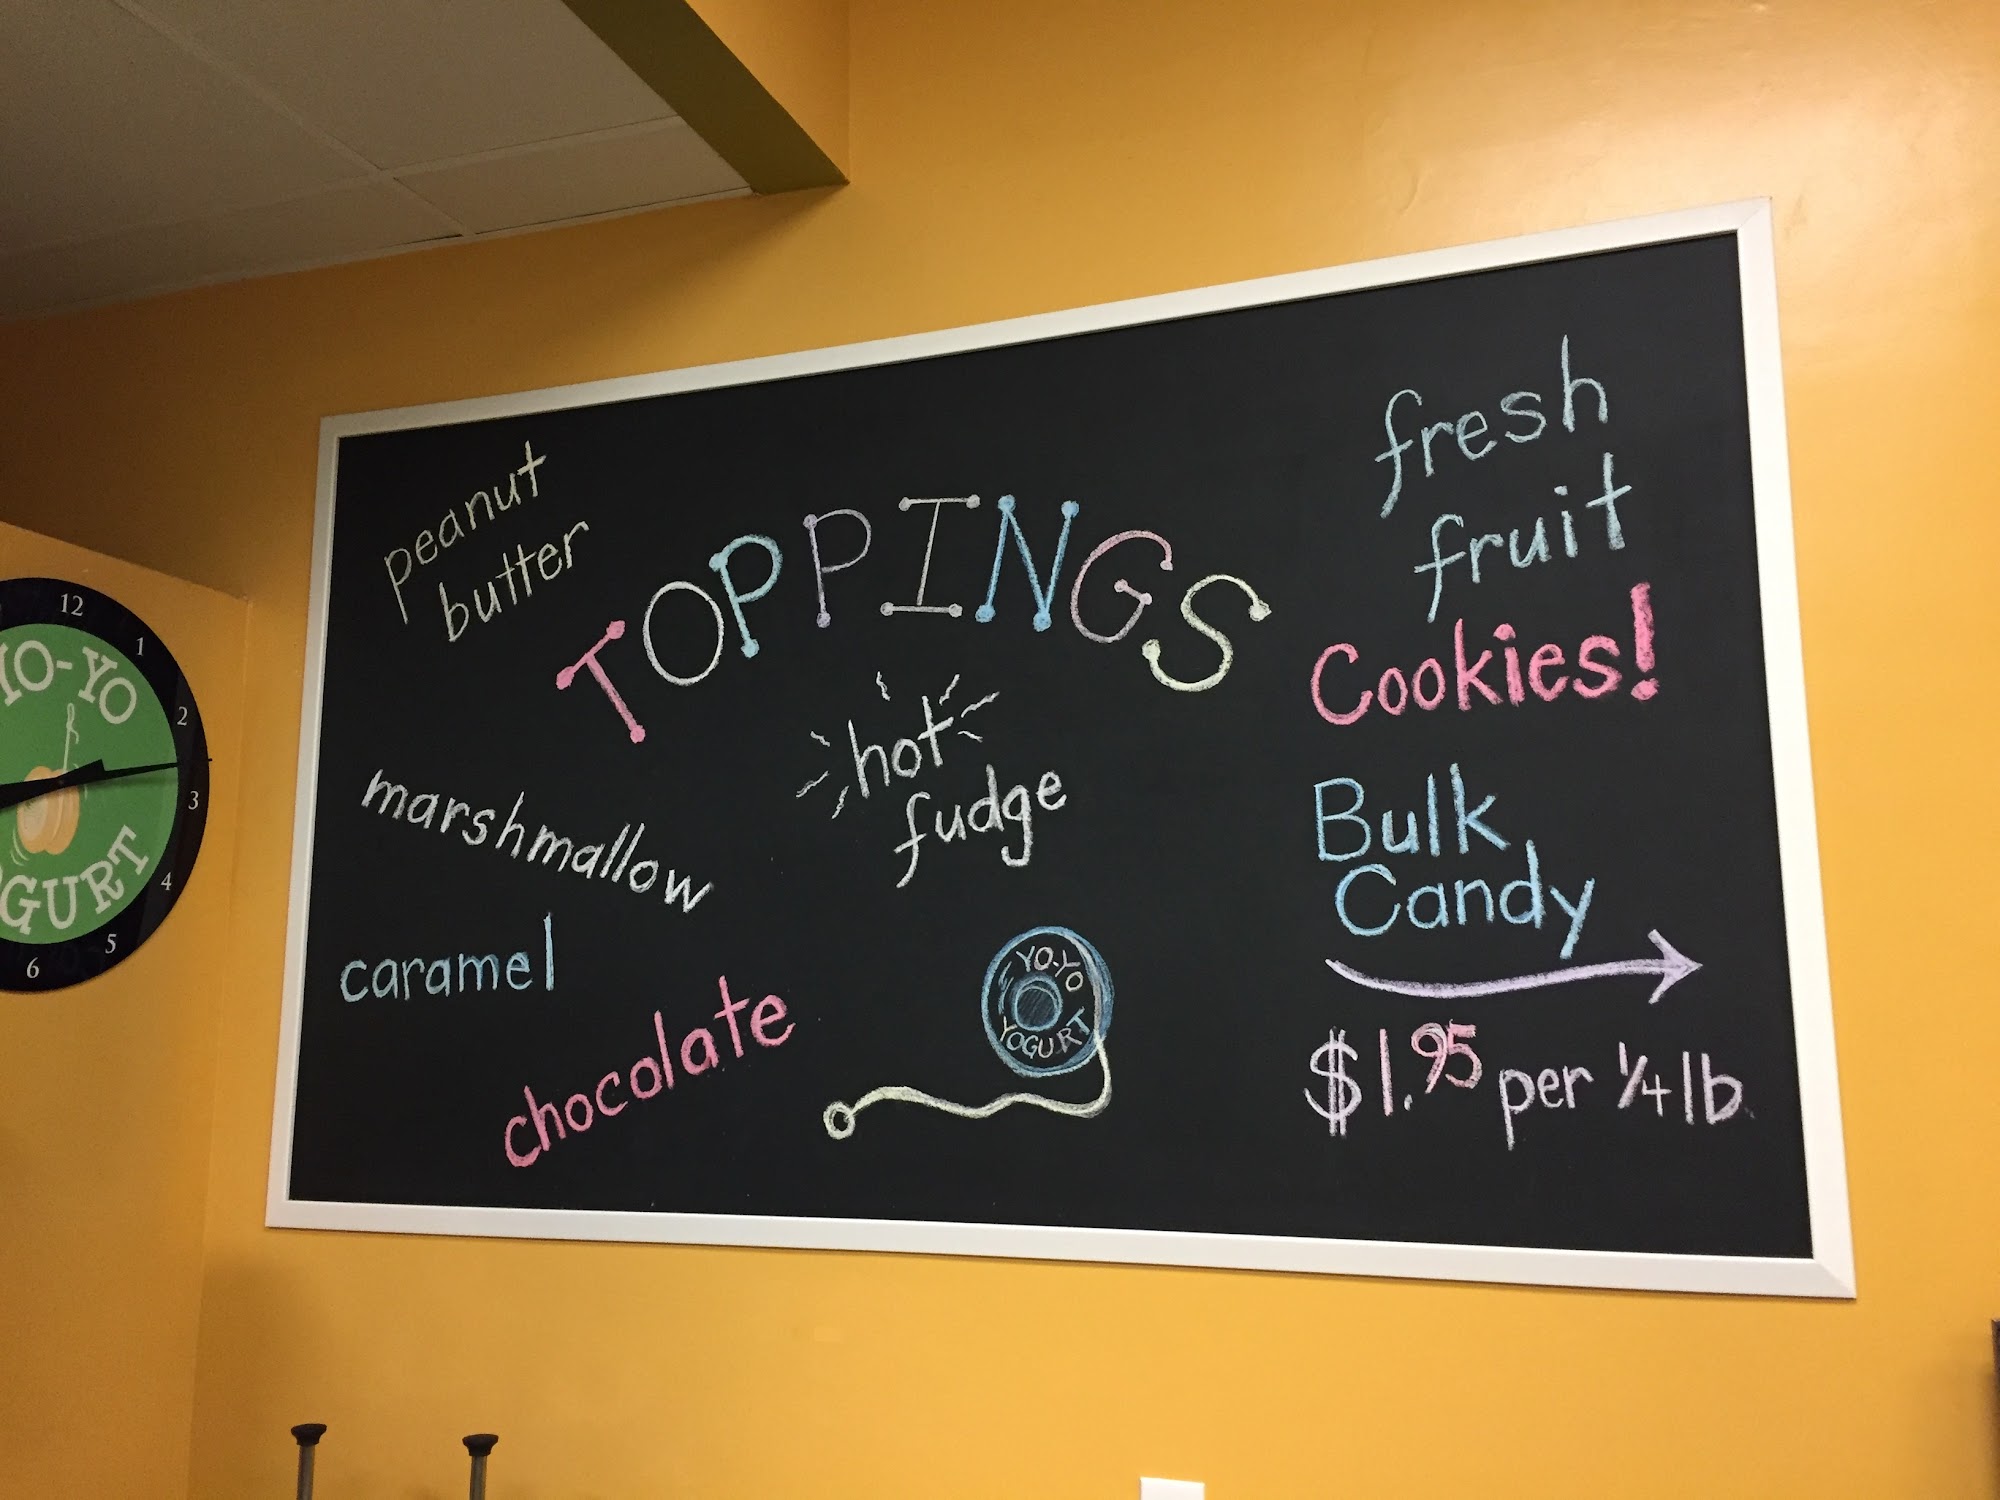 peanut
butter
TOPPINGS
fresh
fruit
Cookies!
hot
fudge
marshmallow
Bulk
Candy
caramel
chocolate
YO-YO
YOGURT
$1.95 per 1/4 lb
12
1
2
3
4
5
6
YO-YO
OGURT